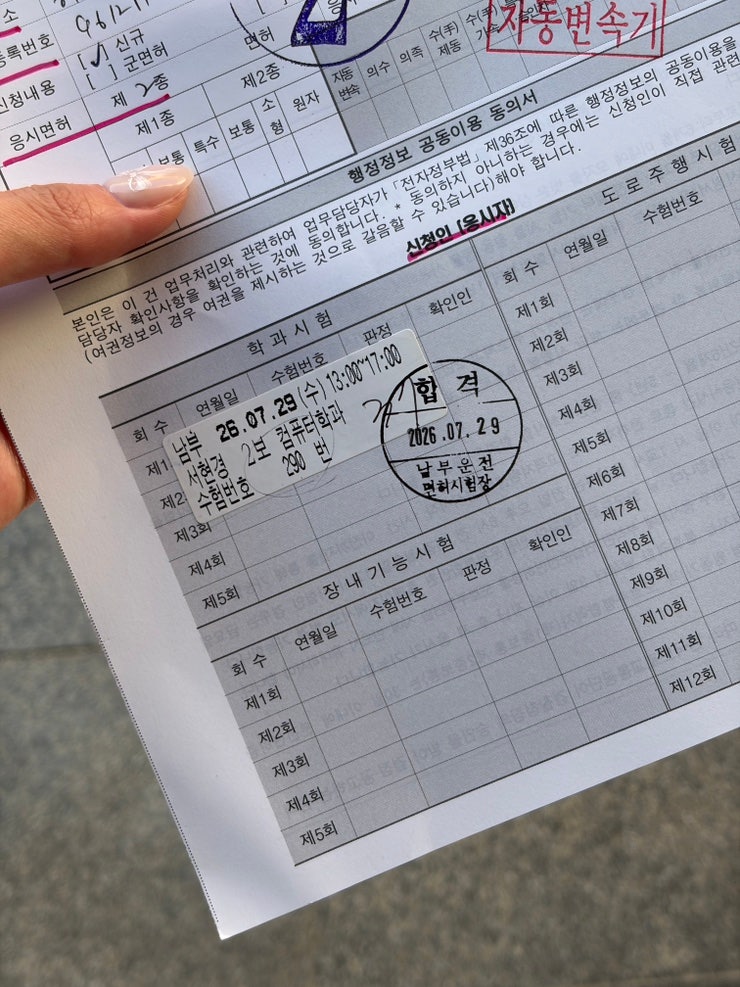 소
등록번호
[✓] 신규
[ ] 군면허
면허
신청내용
제 2종
응시면허
제1종
제2종
보통 특수 보통 소형 원자
자동변속 의수 의족 수(手)제동
자동변속기
행정정보 공동이용 동의서
본인은 이 건 업무처리와 관련하여 업무담당자가 「전자정부법」 제36조에 따른 행정정보의 공동이용을
담당자 확인사항을 확인하는 것에 동의합니다. * 동의하지 아니하는 경우에는 신청인이 직접 관련
(여권정보의 경우 여권을 제시하는 것으로 갈음할 수 있습니다)해야 합니다.
신청인 (응시자)
학 과 시 험
회 수 연월일 수험번호 판정 확인인
제1
제2
제3회
제4회
제5회
남부 26.07.29(수) 13:00~17:00
서현경 2보 컴퓨터학과
수험번호 290 번
합 격
2026.07.29
남부운전
면허시험장
장 내 기 능 시 험
회 수 연월일 수험번호 판정 확인인
제1회
제2회
제3회
제4회
제5회
도 로 주 행 시 험
회 수 연월일 수험번호
제1회
제2회
제3회
제4회
제5회
제6회
제7회
제8회
제9회
제10회
제11회
제12회